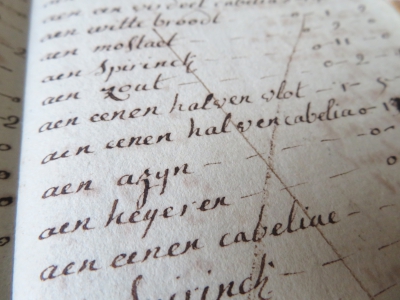 aen een vierdel cabeliau
aen witte broodt — 0 — 2
aen mostaet — 0 — 2 — 0
aen Spirinck — 0 — 11 —
aen zout — 0 — 2 —
aen eenen halven vlot — 1 — 5
aen eenen halven cabeliao — 1
aen azyn — — — 0 —
aen heyeren — — — 0
aen eenen cabeliae — —
Spirinck — —